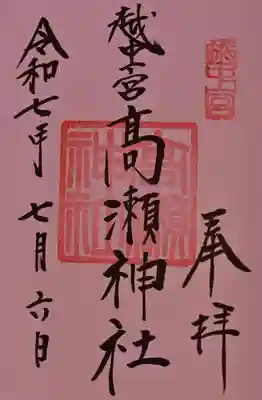 越中宮
奉拝
越中宮
高瀬神社
高瀬神社
令和七年七月六日